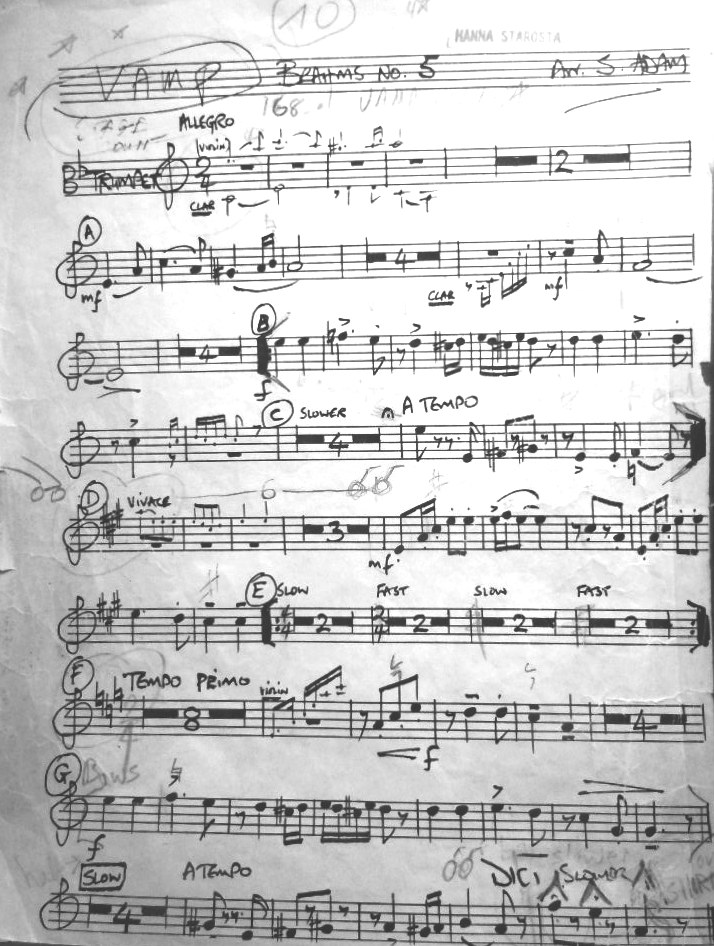 10
HANNA STAROSTA
VAMP BRAHMS NO. 5 Arr. S. ADAM
168
ALLEGRO
(VIOLIN)
TRUMPET 2 4 2
CLAR
A
4
mf CLAR mf
B
4
f
C SLOWER A TEMPO
4
D VIVACE 6
3
mf
E SLOW FAST SLOW FAST
4 4 2 2 4 2 2 2
F TEMPO PRIMO VIOLIN
8 4
f
G
f
SLOW A TEMPO DICI SLOWER
4